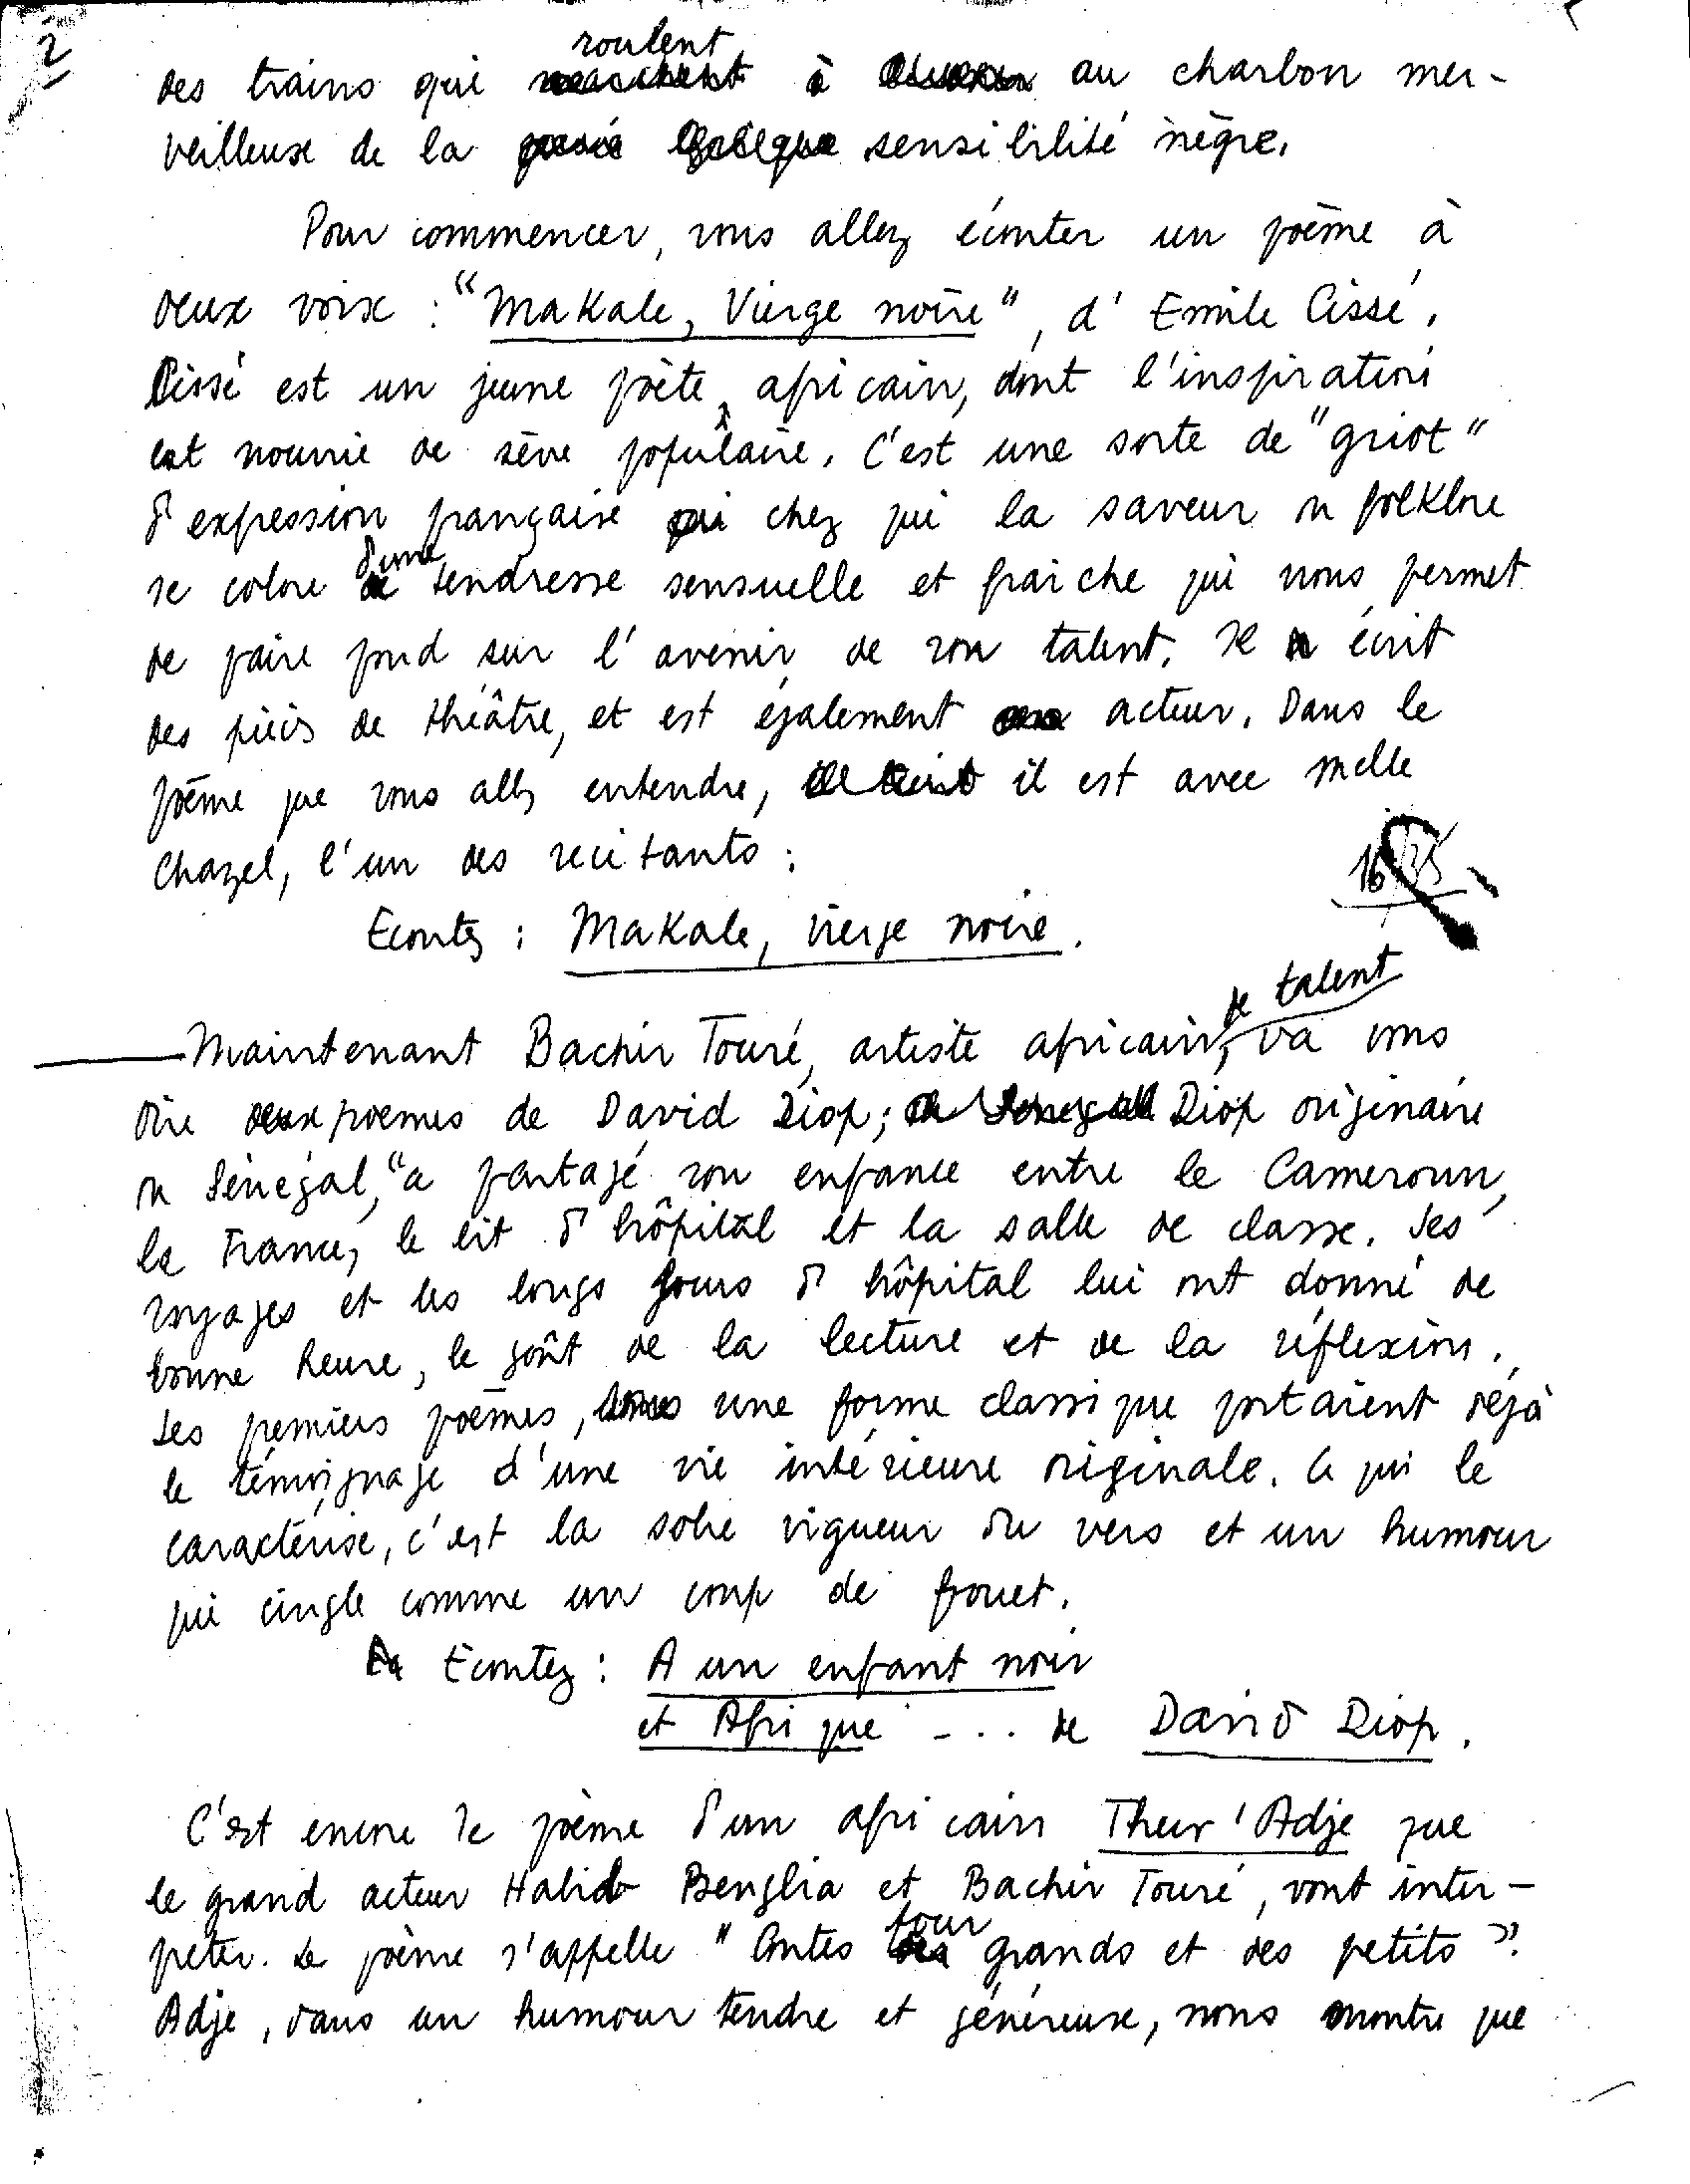 2
des trains qui roulent à au charbon mer-
veilleux de la sensibilité nègre.
Pour commencer, vous allez écouter un poème à
deux voix : "Makale, Vierge noire", d'Emile Cissé.
Cissé est un jeune poète africain, dont l'inspiration
est nourrie de sève populaire. C'est une sorte de "griot"
d'expression française chez qui la saveur du folklore
se colore d'une tendresse sensuelle et fraiche qui nous permet
de faire fond sur l'avenir de son talent. Il écrit
des pièces de théâtre, et est également acteur. Dans le
poème que vous allez entendre, il est avec Melle
Chazel, l'un des recitants :
Ecoutez : Makale, vierge noire.
Maintenant Bachir Touré, artiste africain, de talent va vous
dire deux poemes de David Diop; Diop originaire
du Sénégal, "a partagé son enfance entre le Cameroun,
la France, le lit d'hôpital et la salle de classe. Ses
voyages et les longs jours d'hôpital lui ont donné de
bonne heure, le goût de la lecture et de la réflexion.
Ses premiers poèmes, une forme classique portaient déjà
le témoignage d'une vie intérieure originale. Ce qui le
caractérise, c'est la sobre vigueur du vers et un humour
qui cingle comme un coup de fouet.
Ecoutez : A un enfant noir
et Afrique - ... de David Diop.
C'est encore le poème d'un africain Theur'Adje que
le grand acteur Habib Benglia et Bachir Touré, vont inter-
peter. Le poème s'appelle "Contes pour grands et des petits".
Adje, dans un humour tendre et généreux, nous montre que